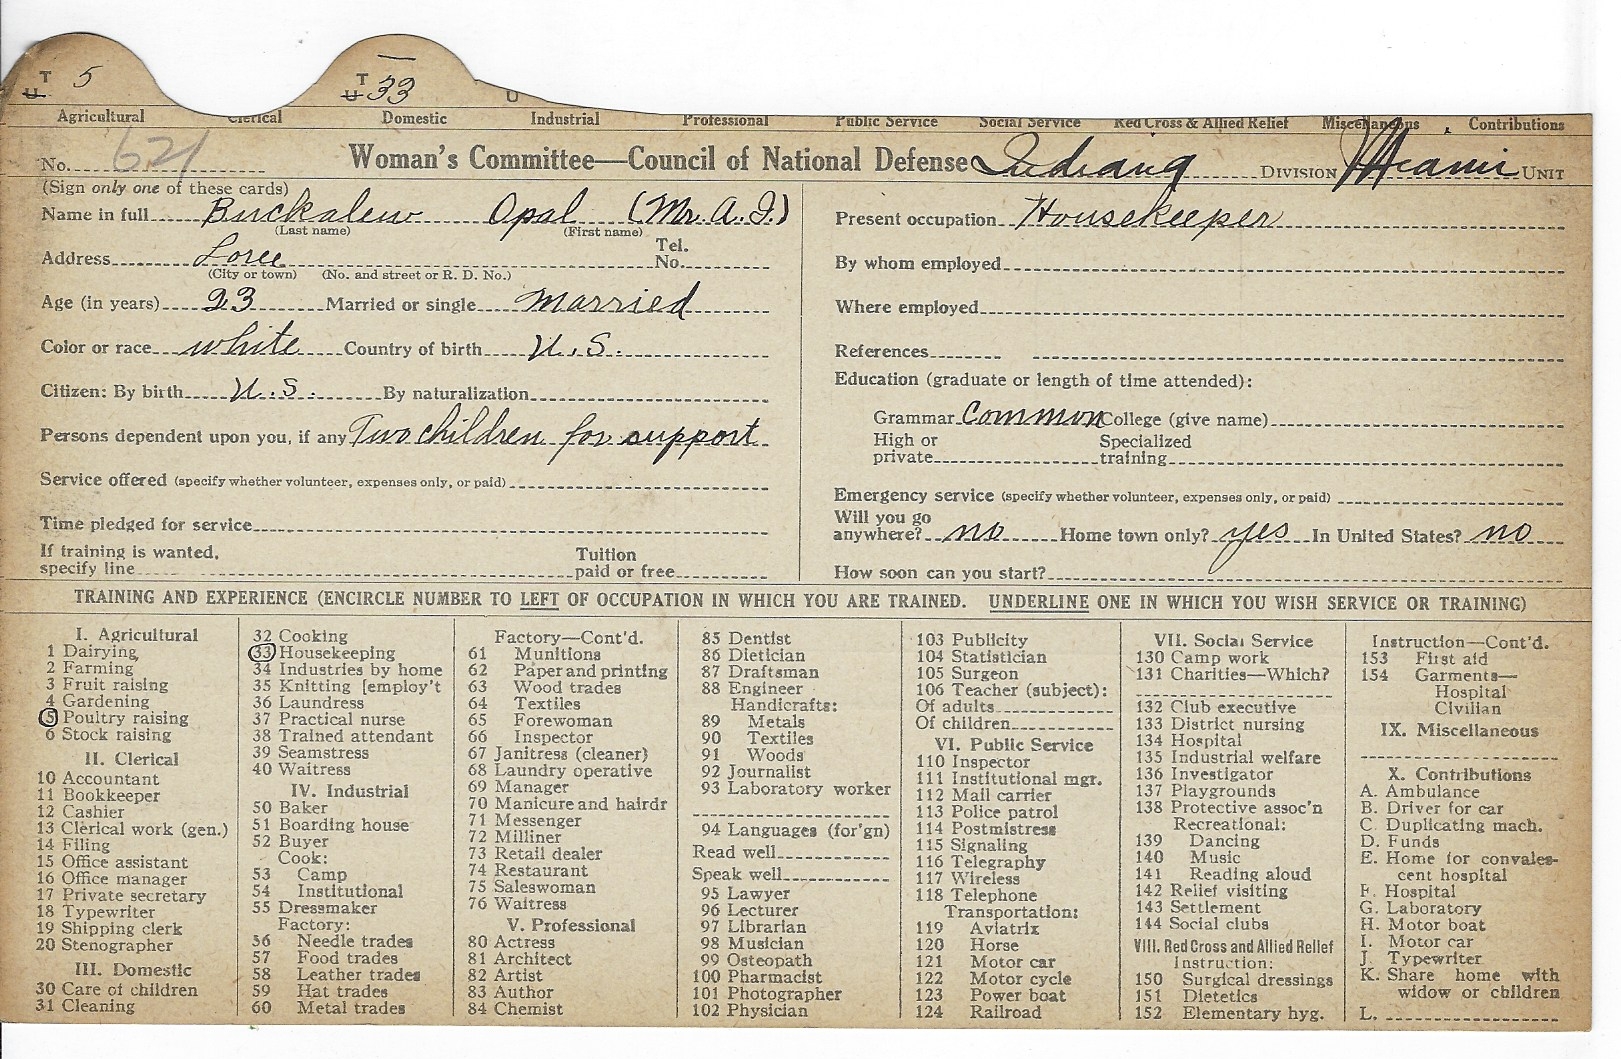 T 5 T 33
U U U
Agricultural Clerical Domestic Industrial Professional Public Service Social Service Red Cross & Allied Relief Miscellaneous Contributions
No. 621 Woman's Committee—Council of National Defense Indiana DIVISION Miami UNIT
(Sign only one of these cards)
Name in full Buckalew Opal (Mr. A. J.)
(Last name) (First name)
Address Loree Tel. No.
(City or town) (No. and street or R. D. No.)
Age (in years) 23 Married or single Married
Color or race white Country of birth U.S.
Citizen: By birth U.S. By naturalization
Persons dependent upon you, if any Two children for support
Service offered (specify whether volunteer, expenses only, or paid)
Time pledged for service
If training is wanted, specify line Tuition paid or free
Present occupation Housekeeper
By whom employed
Where employed
References
Education (graduate or length of time attended):
Grammar Common College (give name)
High or private Specialized training
Emergency service (specify whether volunteer, expenses only, or paid)
Will you go anywhere? no Home town only? yes In United States? no
How soon can you start?
TRAINING AND EXPERIENCE (ENCIRCLE NUMBER TO LEFT OF OCCUPATION IN WHICH YOU ARE TRAINED. UNDERLINE ONE IN WHICH YOU WISH SERVICE OR TRAINING)
I. Agricultural
1 Dairying
2 Farming
3 Fruit raising
4 Gardening
5 Poultry raising
6 Stock raising
II. Clerical
10 Accountant
11 Bookkeeper
12 Cashier
13 Clerical work (gen.)
14 Filing
15 Office assistant
16 Office manager
17 Private secretary
18 Typewriter
19 Shipping clerk
20 Stenographer
III. Domestic
30 Care of children
31 Cleaning
32 Cooking
33 Housekeeping
34 Industries by home
35 Knitting [employ't
36 Laundress
37 Practical nurse
38 Trained attendant
39 Seamstress
40 Waitress
IV. Industrial
50 Baker
51 Boarding house
52 Buyer
Cook:
53 Camp
54 Institutional
55 Dressmaker
Factory:
56 Needle trades
57 Food trades
58 Leather trades
59 Hat trades
60 Metal trades
Factory—Cont'd.
61 Munitions
62 Paper and printing
63 Wood trades
64 Textiles
65 Forewoman
66 Inspector
67 Janitress (cleaner)
68 Laundry operative
69 Manager
70 Manicure and hairdr
71 Messenger
72 Milliner
73 Retail dealer
74 Restaurant
75 Saleswoman
76 Waitress
V. Professional
80 Actress
81 Architect
82 Artist
83 Author
84 Chemist
85 Dentist
86 Dietician
87 Draftsman
88 Engineer
Handicrafts:
89 Metals
90 Textiles
91 Woods
92 Journalist
93 Laboratory worker
94 Languages (for'gn)
Read well
Speak well
95 Lawyer
96 Lecturer
97 Librarian
98 Musician
99 Osteopath
100 Pharmacist
101 Photographer
102 Physician
103 Publicity
104 Statistician
105 Surgeon
106 Teacher (subject):
Of adults
Of children
VI. Public Service
110 Inspector
111 Institutional mgr.
112 Mail carrier
113 Police patrol
114 Postmistress
115 Signaling
116 Telegraphy
117 Wireless
118 Telephone
Transportation:
119 Aviatrix
120 Horse
121 Motor car
122 Motor cycle
123 Power boat
124 Railroad
VII. Social Service
130 Camp work
131 Charities—Which?
132 Club executive
133 District nursing
134 Hospital
135 Industrial welfare
136 Investigator
137 Playgrounds
138 Protective assoc'n
Recreational:
139 Dancing
140 Music
141 Reading aloud
142 Relief visiting
143 Settlement
144 Social clubs
VIII. Red Cross and Allied Relief
Instruction:
150 Surgical dressings
151 Dietetics
152 Elementary hyg.
Instruction—Cont'd.
153 First aid
154 Garments—
Hospital
Civilian
IX. Miscellaneous
X. Contributions
A. Ambulance
B. Driver for car
C. Duplicating mach.
D. Funds
E. Home for convales-
cent hospital
F. Hospital
G. Laboratory
H. Motor boat
I. Motor car
J. Typewriter
K. Share home with
widow or children
L.